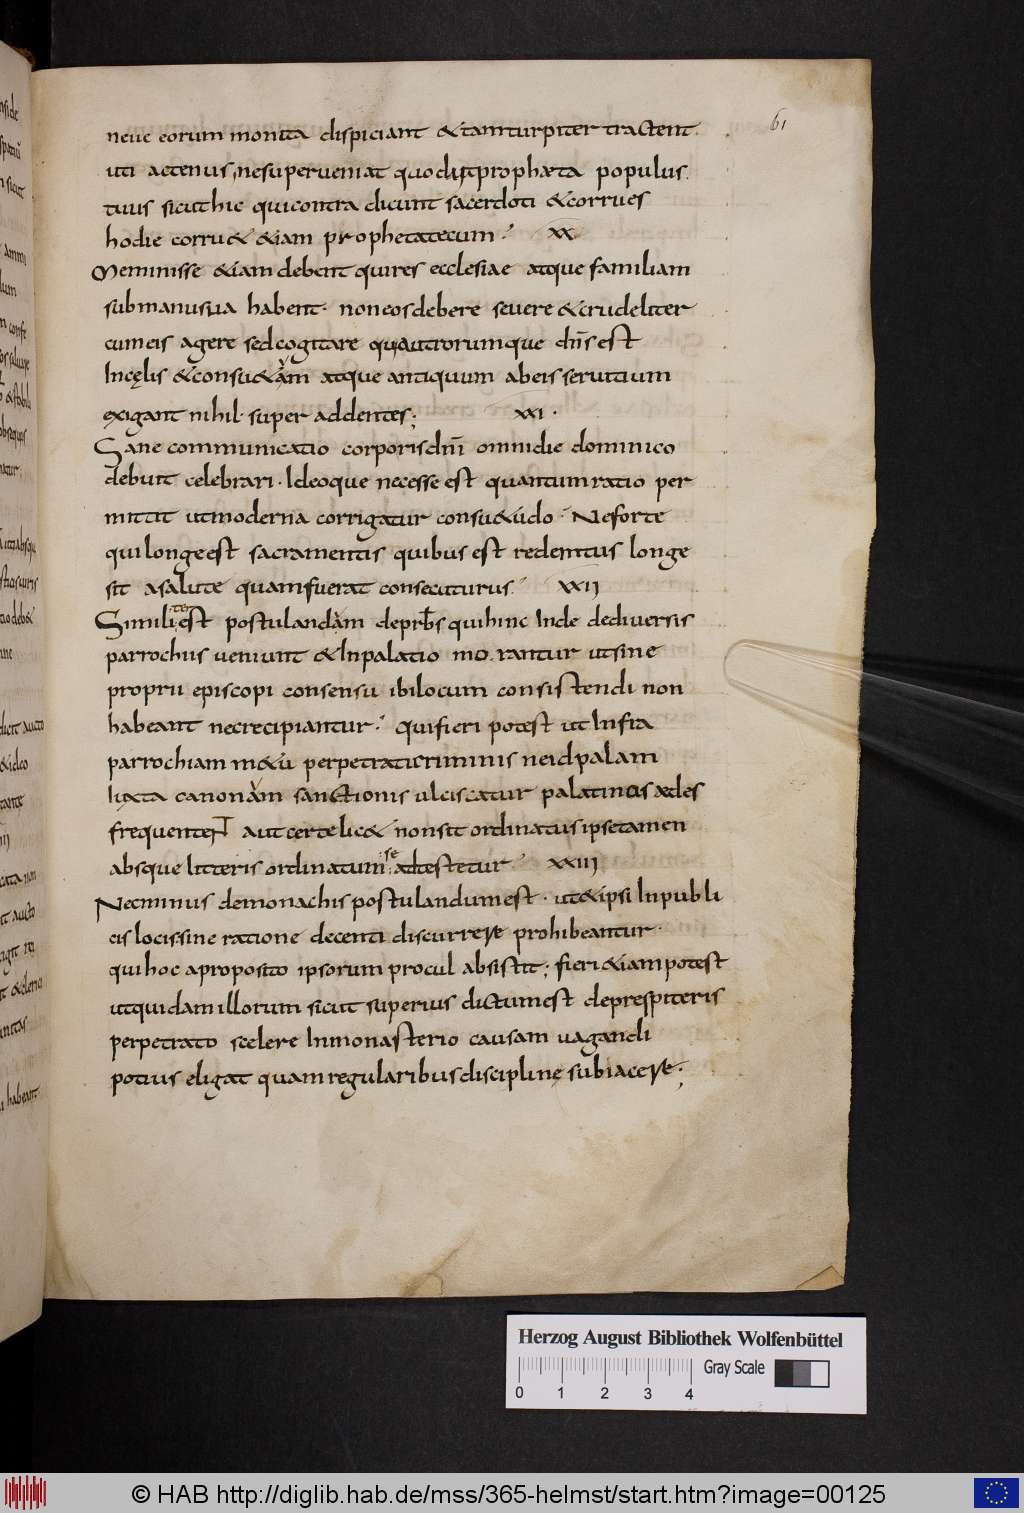 61
neuc eorum monita dispiciant & tam turpiter tractent.
uti actenus, ne superueniat quod ipse propheta populus
tuus sicut hic qui contra dicunt sacerdoti & corrues
hodie corru& &iam propheta tecum. XX
Meminisse &iam debent qui res ecclesiae atque familiam
sub manu sua habent. non eos debere seuere & crudeliter
cum eis agere sed cogitare quia utrorumque dns est
In cęlis & consu&am atque antiquum ab eis seruitium
exigant nihil super addentes; XXI.
Sane communicatio corporis dni omni die dominico
debunt celebrari. Ideoque necesse est quantum ratio per
mittit ut moderna corrigatur consu&udo. Ne forte
qui longe est sacramentis quibus est redemtus longe
sit a salute quam fuerat consecuturus. XXII
Similiter est postulandam de prbs qui hinc Inde de diuersis
parrochiis ueniunt & In palatio morantur ut sine
proprii episcopi consensu ibi locum consistendi non
habeant nec recipiantur. qui fieri potest ut Infra
parrochiam m&u perpetrati criminis ne id palam
Iuxta canonam sanctionis ulciscatur palatinas aedes
frequentent aut certe lic& non sit ordinatus ipse tamen
absque litteris ordinatum se adtestetur. XXIII
Nec minus de monachis postulandum est. ut & ipsi In publi
cis locis sine ratione decenti discurrere prohibeantur.
qui hoc a proposito ipsorum procul absistit; fieri &iam potest
ut quidam illorum sicut superius dictum est de prespiteris
perpetrato scelere In monasterio causam uagandi
potius eligat quam regularibus disciplinę subiacere;
Herzog August Bibliothek Wolfenbüttel
Gray Scale
0 1 2 3 4
© HAB http://diglib.hab.de/mss/365-helmst/start.htm?image=00125